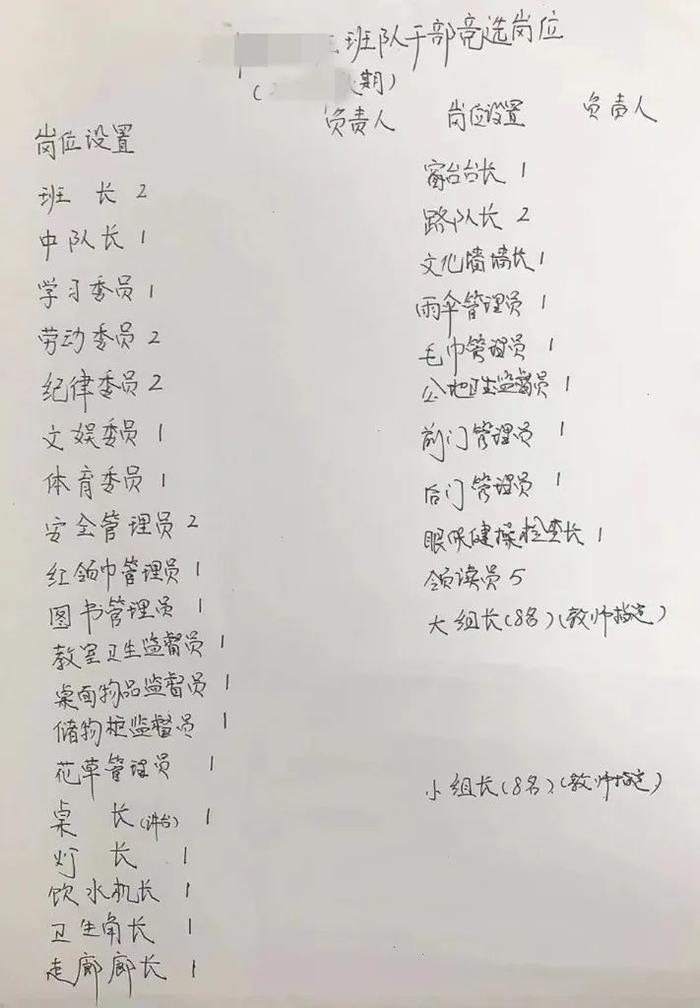 班队干部竞选岗位
(期)
岗位设置 负责人 岗位设置 负责人
班长 2
中队长 1
学习委员 1
劳动委员 2
纪律委员 2
文娱委员 1
体育委员 1
安全管理员 2
红领巾管理员 1
图书管理员 1
教室卫生监督员 1
桌面物品监督员 1
储物柜监督员 1
花草管理员 1
桌长(讲台) 1
灯长 1
饮水机长 1
卫生角长 1
走廊廊长 1
窗台台长 1
路队长 2
文化墙墙长 1
雨伞管理员 1
毛巾管理员 1
公地卫生监督员 1
前门管理员 1
后门管理员 1
眼保健操检查长 1
领读员 5
大组长(8名)(教师指定)
小组长(8名)(教师指定)